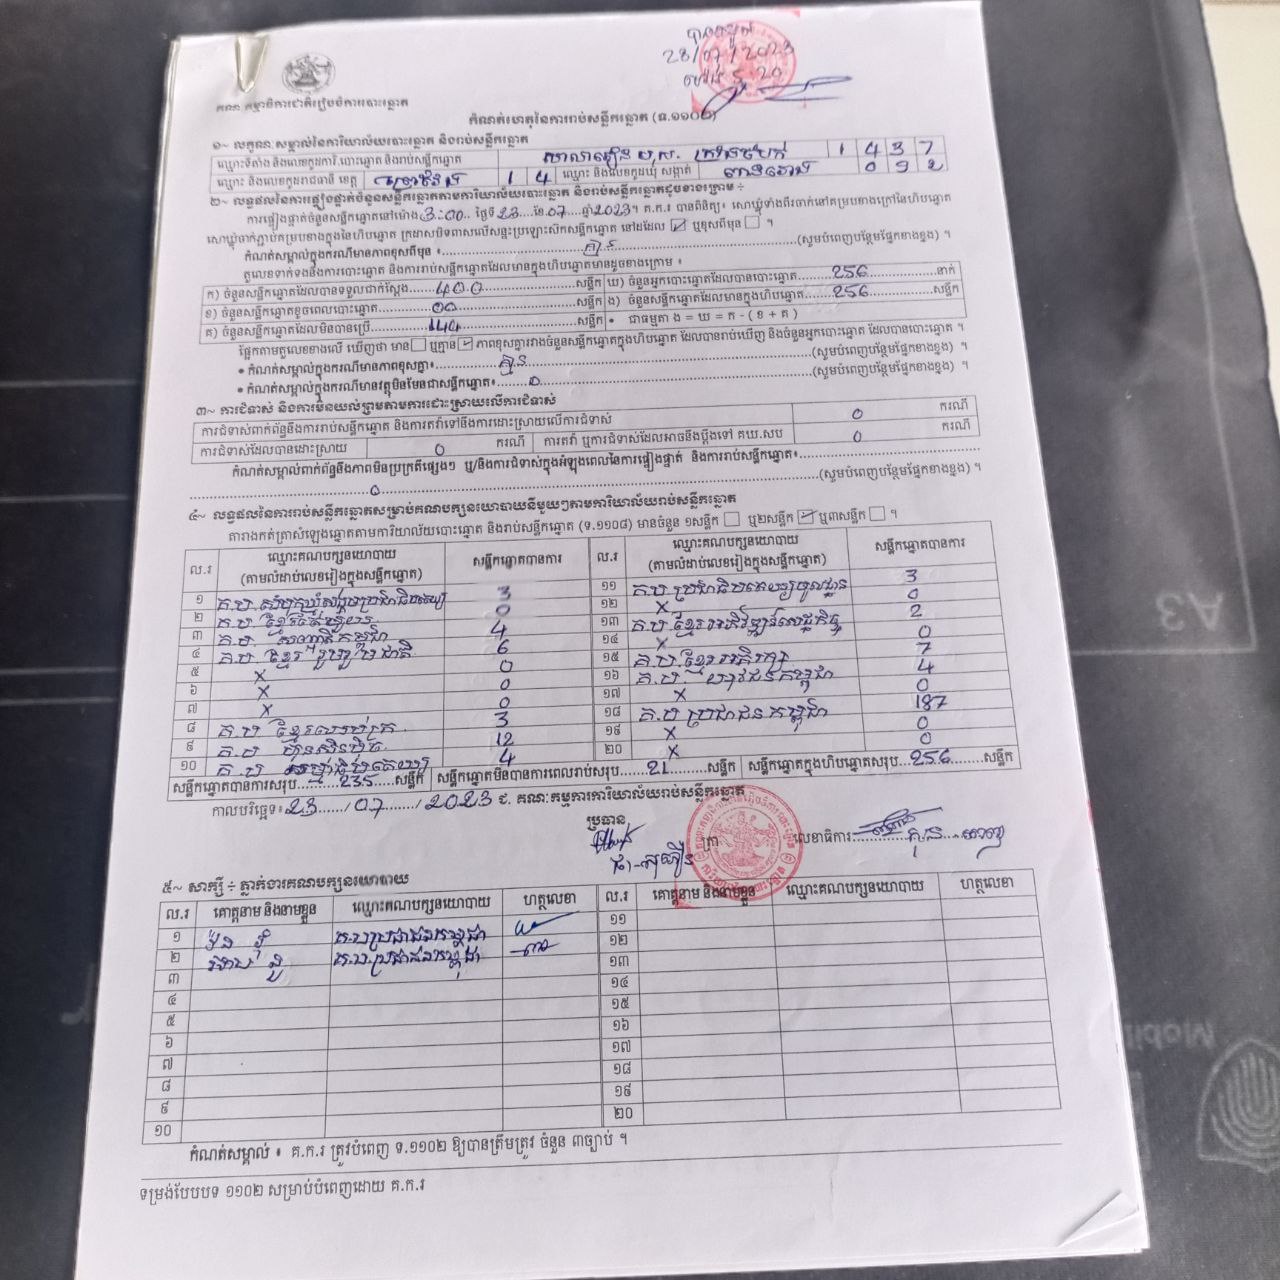 គណៈកម្មាធិការជាតិរៀបចំការបោះឆ្នោត
28/07/2023
កំណត់ហេតុនៃការរាប់សន្លឹកឆ្នោត (ទ.១១០២)
១~ លក្ខណៈសម្គាល់នៃការិយាល័យបោះឆ្នោត និងរាប់សន្លឹកឆ្នោត
ឈ្មោះទីតាំង និងលេខកូដការិ.បោះឆ្នោត និងរាប់សន្លឹកឆ្នោត 1 4 3 7
ឈ្មោះ និងលេខកូដរាជធានី ខេត្ត ព្រៃវែង 1 4 ឈ្មោះ និងលេខកូដឃុំ សង្កាត់ 0 9 2
២~ លទ្ធផលនៃការផ្ទៀងផ្ទាត់ចំនួនសន្លឹកឆ្នោតតាមការិយាល័យបោះឆ្នោត និងរាប់សន្លឹកឆ្នោតដូចខាងក្រោម ÷
ការផ្ទៀងផ្ទាត់ចំនួនសន្លឹកឆ្នោតនៅម៉ោង 3:00 ថ្ងៃទី 23 ខែ 07 ឆ្នាំ 2023។ គ.ក.រ បានពិនិត្យ៖ សោឃ្លុំទាំងពីរចាក់នៅគម្របខាងក្រៅនៃហិបឆ្នោត
សោឃ្លុំចាក់ភ្ជាប់គម្របខាងក្នុងនៃហិបឆ្នោត ក្រដាសបិទពាសលើសន្ទះប្រឡោះសឹកសន្លឹកឆ្នោត នៅដដែល ☑ ឬខុសពីមុន ☐ ។
កំណត់សម្គាល់ក្នុងករណីមានភាពខុសពីមុន ៖ គ្មាន (សូមបំពេញបន្ថែមផ្នែកខាងខ្នង) ។
តួលេខទាក់ទងនឹងការបោះឆ្នោត និងការរាប់សន្លឹកឆ្នោតដែលមានក្នុងហិបឆ្នោតមានដូចខាងក្រោម ៖
ក) ចំនួនសន្លឹកឆ្នោតដែលបានទទួលជាក់ស្តែង 400 សន្លឹក ឃ) ចំនួនអ្នកបោះឆ្នោតដែលបានបោះឆ្នោត 256 នាក់
ខ) ចំនួនសន្លឹកឆ្នោតខូចពេលបោះឆ្នោត 00 សន្លឹក ង) ចំនួនសន្លឹកឆ្នោតដែលមានក្នុងហិបឆ្នោត 256 សន្លឹក
គ) ចំនួនសន្លឹកឆ្នោតដែលមិនបានប្រើ 144 សន្លឹក • ជាធម្មតា ង = ឃ = ក - ( ខ + គ )
ផ្អែកតាមតួលេខខាងលើ ឃើញថា មាន ☐ ឬគ្មាន ☑ ភាពខុសគ្នារវាងចំនួនសន្លឹកឆ្នោតក្នុងហិបឆ្នោត ដែលបានរាប់ឃើញ និងចំនួនអ្នកបោះឆ្នោត ដែលបានបោះឆ្នោត ។
• កំណត់សម្គាល់ក្នុងករណីមានភាពខុសគ្នា៖ គ្មាន (សូមបំពេញបន្ថែមផ្នែកខាងខ្នង) ។
• កំណត់សម្គាល់ក្នុងករណីមានវត្ថុមិនមែនជាសន្លឹកឆ្នោត៖ 0 (សូមបំពេញបន្ថែមផ្នែកខាងខ្នង) ។
៣~ ការជំទាស់ និងការមិនយល់ព្រមតាមការដោះស្រាយលើការជំទាស់
ការជំទាស់ពាក់ព័ន្ធនឹងការរាប់សន្លឹកឆ្នោត និងការតវ៉ាទៅនឹងការដោះស្រាយលើការជំទាស់ 0 ករណី
ការជំទាស់ដែលបានដោះស្រាយ 0 ករណី ការតវ៉ា ឬការជំទាស់ដែលអាចនឹងប្តឹងទៅ គឃ.សប 0 ករណី
កំណត់សម្គាល់ពាក់ព័ន្ធនឹងភាពមិនប្រក្រតីផ្សេងៗ ឬ/និងការជំទាស់ក្នុងអំឡុងពេលនៃការផ្ទៀងផ្ទាត់ និងការរាប់សន្លឹកឆ្នោត៖
0 (សូមបំពេញបន្ថែមផ្នែកខាងខ្នង) ។
៤~ លទ្ធផលនៃការរាប់សន្លឹកឆ្នោតសម្រាប់គណបក្សនយោបាយនីមួយៗតាមការិយាល័យរាប់សន្លឹកឆ្នោត
តារាងកត់ត្រាសំឡេងឆ្នោតតាមការិយាល័យបោះឆ្នោត និងរាប់សន្លឹកឆ្នោត (ទ.១១០៨) មានចំនួន ១សន្លឹក ☐ ឬ២សន្លឹក ☑ ឬ៣សន្លឹក ☐ ។
ល.រ ឈ្មោះគណបក្សនយោបាយ (តាមលំដាប់លេខរៀងក្នុងសន្លឹកឆ្នោត) សន្លឹកឆ្នោតបានការ ល.រ ឈ្មោះគណបក្សនយោបាយ (តាមលំដាប់លេខរៀងក្នុងសន្លឹកឆ្នោត) សន្លឹកឆ្នោតបានការ
១ គ.ប សំបុកឃ្មុំសង្គមប្រជាធិបតេយ្យ 3 ១១ 3
២ 0 ១២ X 0
៣ 4 ១៣ គ.ប ខ្មែរអភិវឌ្ឍន៍សេដ្ឋកិច្ច 2
៤ គ.ប ខ្មែររួបរួមជាតិ 6 ១៤ X 0
៥ X 0 ១៥ គ.ប ខ្មែរអភិរក្ស 7
៦ X 0 ១៦ គ.ប យុវជនកម្ពុជា 4
៧ X 0 ១៧ X 0
៨ 3 ១៨ គ.ប ប្រជាជនកម្ពុជា 187
៩ គ.ប ហ៊្វុនស៊ិនប៉ិច 12 ១៩ X 0
១០ 4 ២០ X 0
សន្លឹកឆ្នោតបានការសរុប 235 សន្លឹក សន្លឹកឆ្នោតមិនបានការពេលរាប់សរុប 21 សន្លឹក សន្លឹកឆ្នោតក្នុងហិបឆ្នោតសរុប 256 សន្លឹក
កាលបរិច្ឆេទ៖ 23 / 07 / 2023 ជ. គណៈកម្មការការិយាល័យរាប់សន្លឹកឆ្នោត
ប្រធាន ត្រា លេខាធិការ
៥~ សាក្សី ÷ ភ្នាក់ងារគណបក្សនយោបាយ
ល.រ គោត្តនាម និងនាមខ្លួន ឈ្មោះគណបក្សនយោបាយ ហត្ថលេខា ល.រ គោត្តនាម និងនាមខ្លួន ឈ្មោះគណបក្សនយោបាយ ហត្ថលេខា
១ គ.ប.ប្រជាជនកម្ពុជា ១១
២ គ.ប.ប្រជាជនកម្ពុជា ១២
៣ ១៣
៤ ១៤
៥ ១៥
៦ ១៦
៧ ១៧
៨ ១៨
៩ ១៩
១០ ២០
កំណត់សម្គាល់ ៖ គ.ក.រ ត្រូវបំពេញ ទ.១១០២ ឱ្យបានត្រឹមត្រូវ ចំនួន ៣ច្បាប់ ។
ទម្រង់បែបបទ ១១០២ សម្រាប់បំពេញដោយ គ.ក.រ
A3